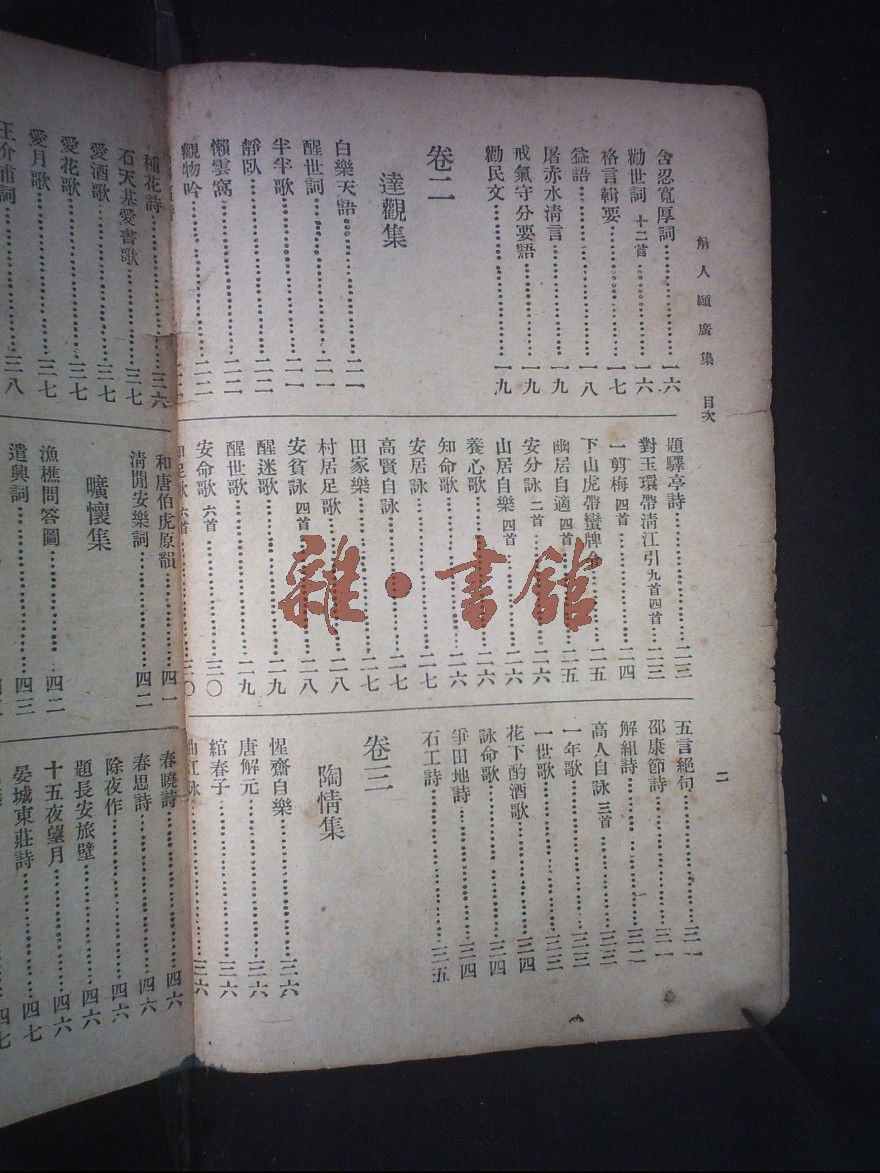 解人頤廣集 目次
二
含忍寬厚詞……一六
勸世詞 十二首……一六
格言輯要……一七
益語……一八
屠赤水清言……一九
戒氣守分要語……一九
勸民文……一九
卷二
達觀集
白樂天語……二一
醒世詞……二一
半半歌……二一
靜臥……二二
懶雲窩……二二
觀物吟……二二
題驛亭詩……二三
對玉環帶清江引 九首四首……二三
一剪梅 四首……二四
下山虎帶蠻牌令……二五
幽居自適 四首……二五
安分詠 二首……二六
山居自樂 四首……二六
養心歌……二六
知命歌……二六
安居詠……二七
高賢自詠……二七
田家樂……二七
村居足歌……二八
安貧詠 四首……二八
醒迷歌……二九
醒世歌……二九
安命歌 六首……三〇
知足歌 六首……三〇
五言絕句……三一
邵康節詩……三一
解組詩……三二
高人自詠 三首……三三
一年歌……三三
一世歌……三三
花下酌酒歌……三四
詠命歌……三四
爭田地詩……三四
石工詩……三五
卷三
陶情集
惺齋自樂……三六
唐解元……三六
綰春子……三六
曲江詠……三六
種花詩……三六
石天基愛書歌……三七
愛酒歌……三七
愛花歌……三七
愛月歌……三七
王介甫詞……三八
和唐伯虎原韻……四一
清閒安樂詞……四二
曠懷集
漁樵問答圖……四二
遣興詞……四三
春曉詩……四六
春思詩……四六
除夜作……四六
題長安旅壁……四六
十五夜望月……四六
晏城東莊詩……四七
四七
雜·書館